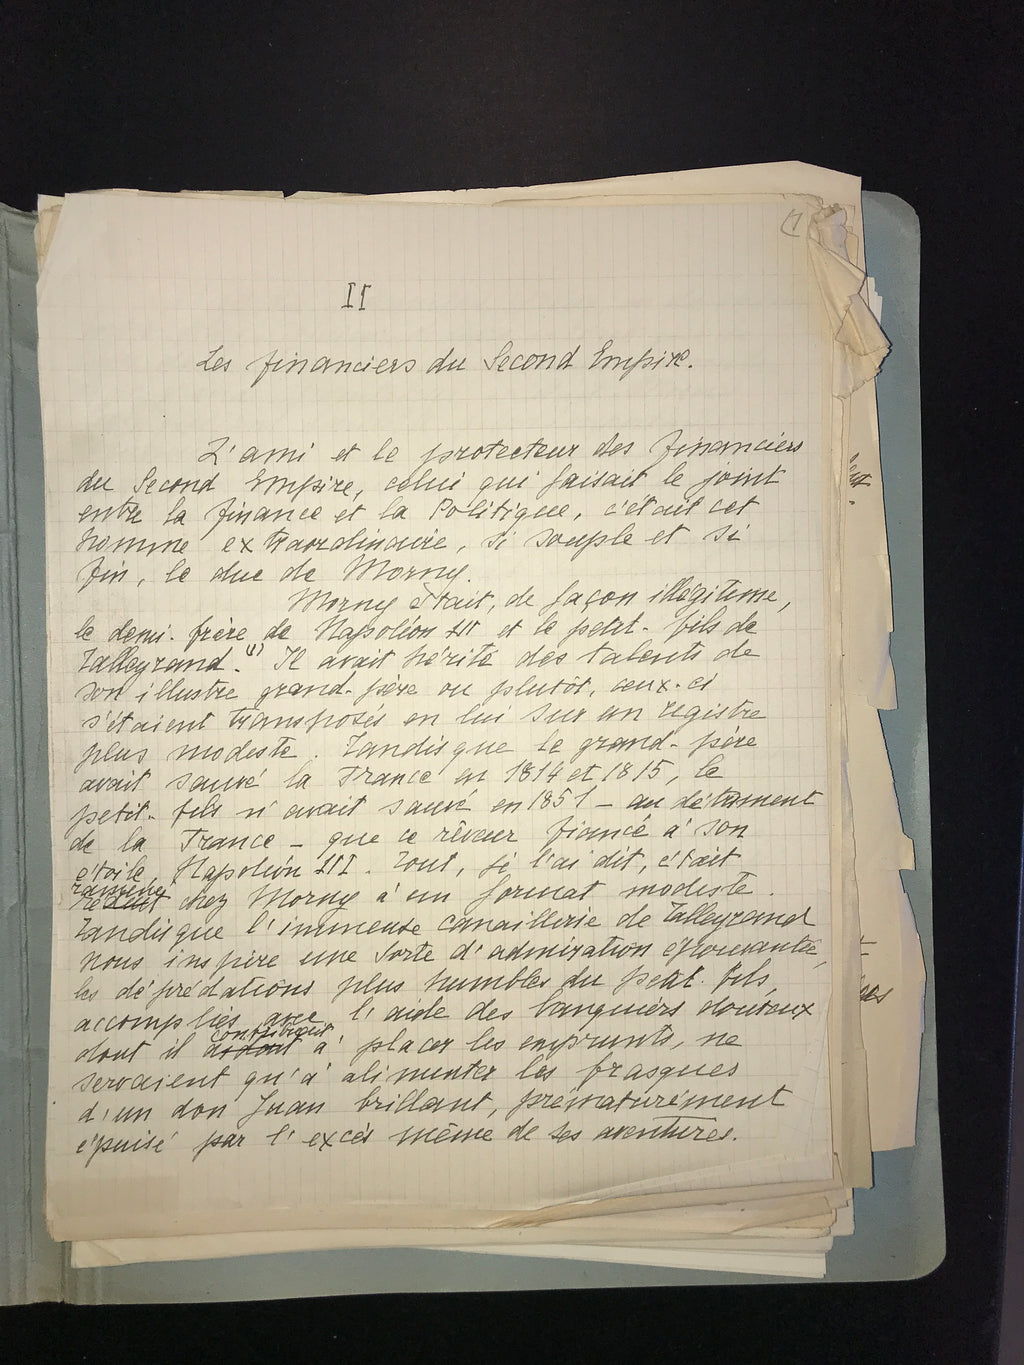 II
Les financiers du Second Empire.
L'ami et le protecteur des financiers
du Second Empire, celui qui faisait le joint
entre la finance et la Politique, c'était cet
homme extraordinaire, si souple et si
fin, le duc de Morny.
Morny était, de façon illégitime,
le demi-frère de Napoléon III et le petit-fils de
Talleyrand.(1) Il avait hérité des talents de
son illustre grand-père ou plutôt, ceux-ci
s'étaient transposés en lui sur un registre
plus modeste. Tandis que le grand-père
avait sauvé la France en 1814 et 1815, le
petit-fils n'avait sauvé en 1851 – au détriment
de la France – que ce rêveur fiancé à son
étoile, Napoléon III. Tout, je l'ai dit, était
ramené
réduit chez Morny à un format modeste.
Tandis que l'immense canaillerie de Talleyrand
nous inspire une sorte d'admiration épouvantée,
les déprédations plus humbles du petit-fils,
accomplies avec l'aide des banquiers douteux
contribuait
dont il aidait à placer les emprunts, ne
servaient qu'à alimenter les frasques
d'un don Juan brillant, prématurément
épuisé par l'excès même de ses aventures.